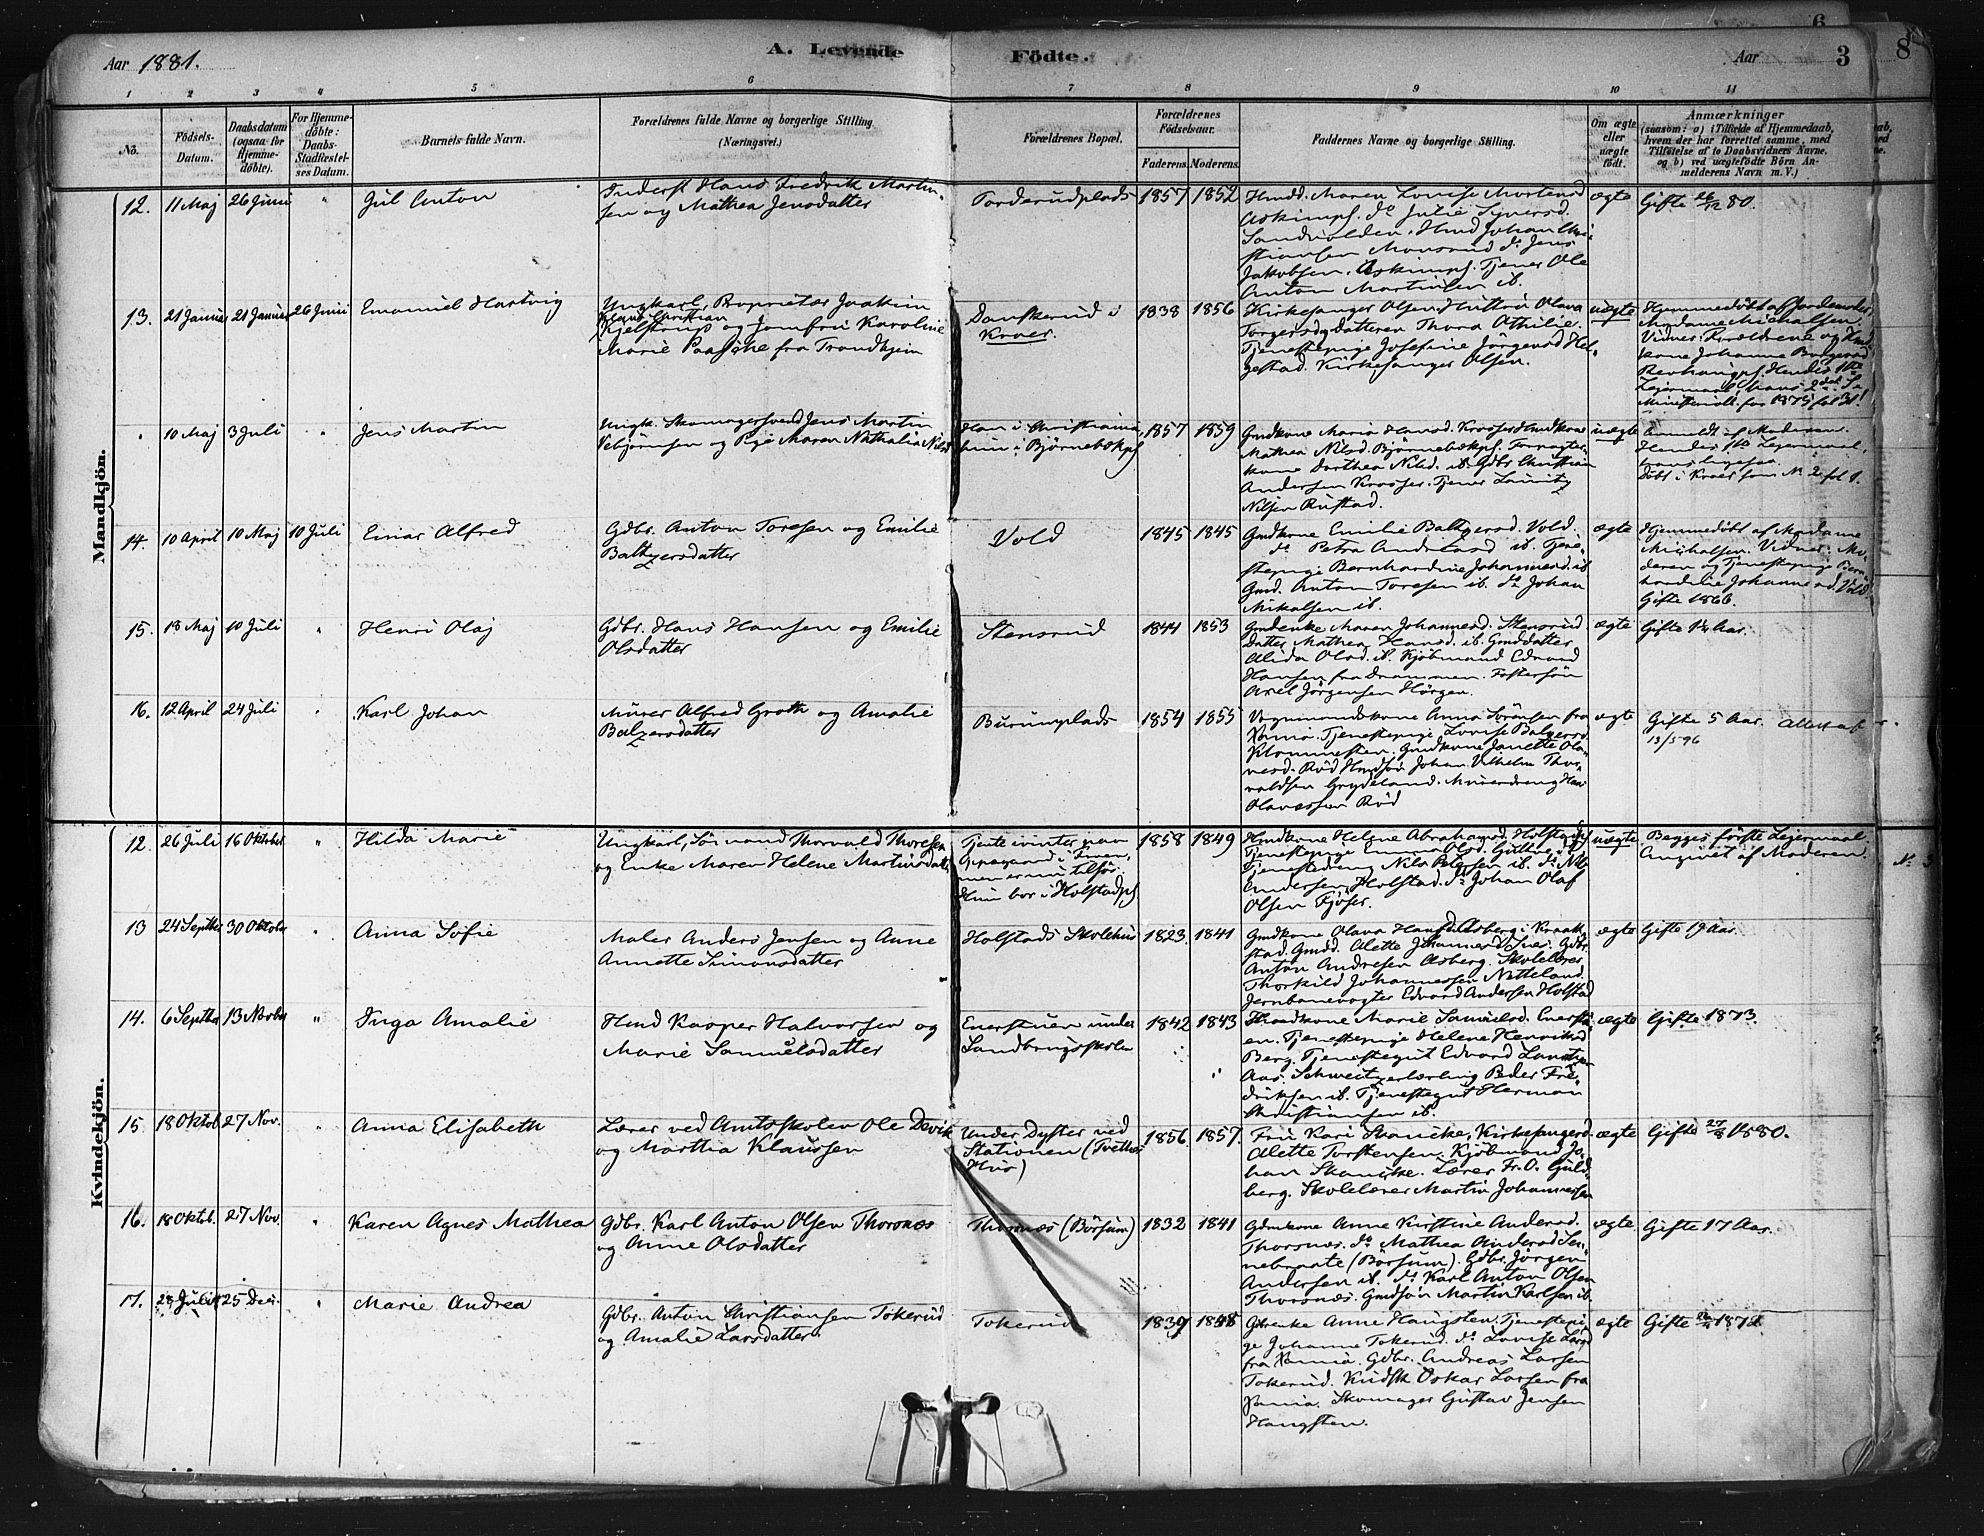 Aar 1881.
A. Levende
Fødte.
Aar
3
8
6
1 2 3 4 5 6 7 8 9 10 11
No.
Fødsels-
Datum.
Daabsdatum
(ogsaa for
Hjemme-
døbte).
For Hjemme-
døbte:
Daabs-
Stadfæstel-
ses Datum.
Barnets fulde Navn.
Forældrenes fulde Navne og borgerlige Stilling
(Næringsvei.)
Forældrenes Bopæl.
Forældrenes
Fødselsaar.
Faderens. Moderens.
Faddernes Navne og borgerlige Stilling.
Om ægte
eller
uægte
født.
Anmærkninger
(saasom: a) i Tilfælde af Hjemmedaab,
hvem der har forrettet samme, med
Tilføielse af to Daabsvidners Navne,
og b) ved uægtefødte Børn An-
melderens Navn m. V.)
Mandkjön.
12. 11 Maj 26 Juni " Jul Anton
Inderst Hans Fredrik Martin-
sen og Mathea Jensdatter
Forderudplads 1857 1852
Hmdd. Maren Lovise Mortensd
Askimpf. do Julie Syversd.
Sandvolden. Hmd Johan Chri-
stiansen Monsrud do Jens
Jakobsen. Askimpf. Tjener Ole
Anton Martinsen ib.
ægte Gifte 26/12 80.
13. 21 Januar 21 Januar 26 Juni Emanuel Hartvig
Ungkarl, Proprietær Joakim
Klaus Christian
Kjelstrup og Jomfru Karoline
Marie Paasche fra Trondhjem
Danskerud i
Kroer.
1838 1856
Kirkesanger Olsen. Olava
Torgersdy datteren Thora Othilie.
Tjenestepige Josefine Jörgensd Hel-
gestad. Kirkesanger Olsen.
uægte
Hjemmedøbt af Jordemoder
Madame Michalsen
Vidner: Forældrene og
kone Johanne
Hendes 1ste
Lejermaal, hans 2det. Se
Ministerialb. for 1875 fol 31!
" 10 Maj 3 Juli " Jens Martin
Ungk. Skomagersvend Jens Martin
Vebjörnsen og Pige Maren Nathalia Nilsd
Han i Christiania
hun i Björnebækpf
1857 1859
Gmdkone Maria Hansd. Kroser Hmdkone
Mathea Nilsd. Björnebækpf. Forpagter-
kone Dorthea Nilsd. ib. Gdbr Christian
Andersen Kroser. Tjener Lauritz
Nilsen Rustad.
uægte
Anmeldt af Moderen.
Hendes 1ste Lejermaal,
hans ligesaa.
Döbt i Kroer som No 2 fol 1.
14. 10 April 10 Maj 10 Juli Einar Alfred
Gdbr. Anton Toresen og Emilie
Baltzersdatter
Vold 1845 1845
Gmdkone Emilie Baltzersd. Vold.
do Petra Andreasd ib. Tjene-
stepige Bernhardine Johannesd. ib
Gmd. Anton Toresen ib. do Johan
Mikalsen ib.
ægte
Hjemmedöbt af Madame
Michalsen. Vidner: Mo-
deren og Tjenestepige Bern-
hardine Johannesd. Vold
Gifte 1866.
15. 18 Maj 10 Juli " Henri Olaj
Gdbr. Hans Hansen og Emilie
Olsdatter
Stensrud 1844 1853
Gmdenke Maren Johannesd. Stensrud
Datter Mathea Hansd. ib. Gmddatter
Alida Olsd. ib. Kjöbmand Edvard
Hansen fra Drammen. Fostersön
Axel Jörgensen Hörgen.
ægte Gifte 1½ Aar.
16. 12 April 24 Juli " Karl Johan
Murer Alfred Groth og Amalie
Baltzersdatter
Burumplads 1854 1855
Vognmandskone Anna Sörensen fra
Xania. Tjenestepige Lovise Baltzersd
Klommesten. Gmdkone Janette Ola-
vesd. Röd Hmdsön Johan Vilhelm Thor-
valdsen Grydeland. Murerdreng Hans
Olavessen Röd
ægte Gifte 5 Aar. Attest af
13/5 96
Kvindekjön.
12. 26 Juli 16 Oktober " Hilda Marie
Ungkarl, Sömand Thorvald Thoresen
og Enke Maren Helene Martinsdatter
Tjente ivinter paa
men er nu tilsös.
Hun bor i Holstadpf
1858 1849
Hmdkone Helene Abrahamsd. Holstadpf
Tjenestepige Emma Olsd.
Tjenestedreng Nils Petersen ib. do Nils
Andersen, Holstad. do Johan Olaf
Olsen Fjöser.
uægte
Begges förste Lejermaal.
Angivet af Moderen.
No 3
13 24 Septbr 30 Oktober " Anna Sofie
Maler Anders Jensen og Anne
Annette Simonsdatter
Holstads Skolehus 1823. 1841
Gmdkone Olava Hansd. Asberg i Kraak-
stad. Gmdd. Alette Johannesd. Gdbr.
Anton Andresen Asberg. Skolelærer
Thorkild Johannessen Nitteland.
Jernbanevogter Edvard Andersen Holstad
ægte Gifte 19 Aar.
14. 6 Septbr 13 Novbr " Inga Amalie
Hmd Kasper Halvorsen og
Marie Samuelsdatter
Enerstuen under
Landbrugsskolen
1842 1843
Hmdkone Marie Samuelsd. Enerstu-
en. Tjenestepige Helene Henriksd
Berg. Tjenestegut Edvard
Aas. Schweitzerlærling Peder Fre-
driksen ib. Tjenestegut Herman
Christiansen ib.
ægte Gifte 1873.
15 18 Oktob. 27 Nov. " Anna Elisabeth
Lærer ved Amtsskolen Ole Devik
og Martha Klaussen
Under Dyster ved
Stationen (Tveters
Hus)
1856. 1857.
Fru Kari Skancke, Kirkesangerd.
Alette Torstensen. Kjöbmand Jo-
han Skancke. Lærer Fr. O. Guld-
berg. Skolelærer Martin Johannessen
ægte Gifte 27/8 1880.
16. 18 Oktob. 27 Nov. " Karen Agnes Mathea
Gdbr. Karl Anton Olsen Thorsnæs
og Anne Olsdatter
Thorsnæs (Börsum) 1832 1841
Gdmkone Anne Kirstine Andersd.
Thorsnæs. do Mathea Andersd Sen-
nebraate (Börsum). Gdbr. Jörgen
Andersen ib. do Karl Anton Olsen
Thorsnæs. Gmdsön Martin Karlsen ib.
ægte Gifte 17 Aar.
17. 28 Juli 25 Dec. " Marie Andrea
Gdbr. Anton Christiansen Tokerud
og Amalie Larsdatter.
Tokerud 1839 1848
Gbrenke Anne Haugsten. Tjenestepi-
ge Johanne Tokerud. do Lovise Larsd
fra Xania. Gdbr. Andreas Larsen
Tokerud. Kudsk Oskar Larsen fra
Xania. Skomager Gustav Jensen
Haugsten.
ægte Gifte 1872